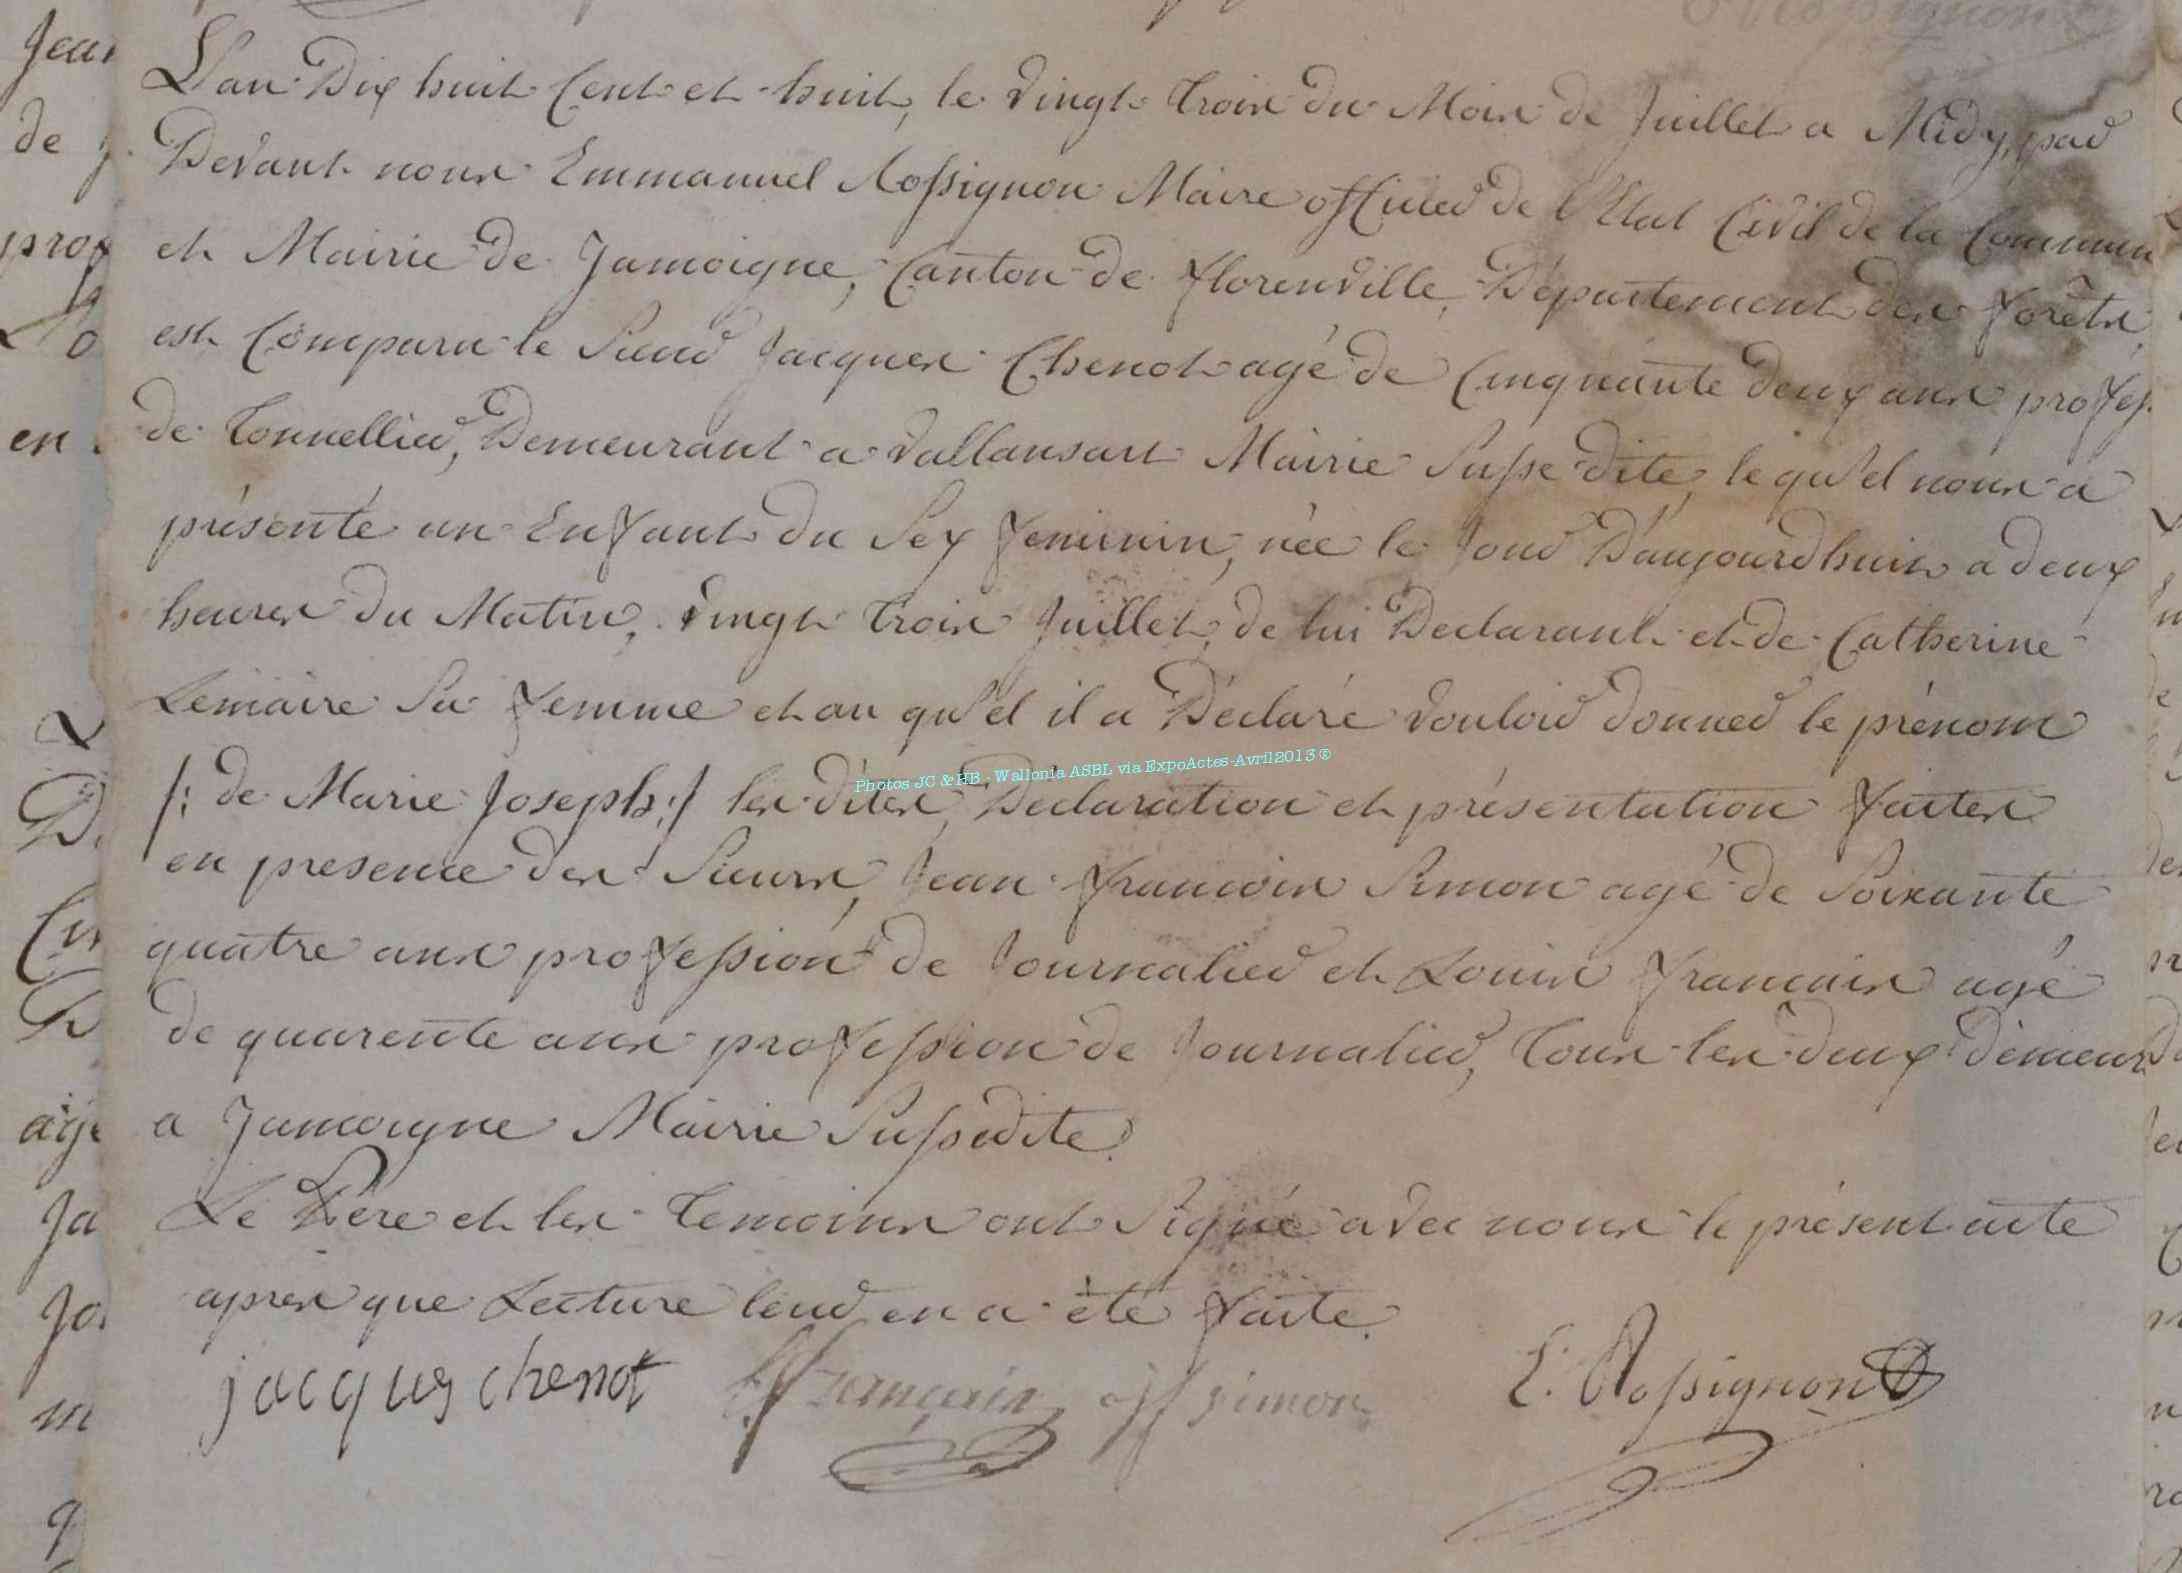 L'an Dix huit Cent et huit, le Vingt Trois du Mois de Juillet a Midy, par
Devant nous Emmanuel Rossignon Maire officier de l'Etat Civil de la Commun
et Mairie de Jamoigne, Canton de florenville, Département des forêts,
est Comparu le Sieur Jacques Chenot agé de Cinquante deux ans profes.
de Tonnellier, Demeurant a Vallansart Mairie Susse dite, le qu'el nous a
présenté un Enfant du Sex feminin, née le Jour D'aujourdhuit a deux
heures du Matin, Vingt Trois Juillet, de lui Declarant et de Catherine
Lemaire Sa femme et au qu'el il a Déclaré Vouloir donner le prénom
/: de Marie Joseph :/ les dites, Declaration et présentation faites
en presence des Sieurs, Jean francois Simon agé de Soixante
quatre ans profession de Journalier et Louis francais agé
de quarente ans profession de Journalier, Tous les deux demeur
a Jamoigne Mairie Sussedite.
Le Père et les Temoins ont Signé avec nous le présent acte
apres que Lecture leur en a été faite.
jacques chenot français simon E. Rossignon
Photos JC & HB - Wallonia ASBL via ExpoActes-Avril2013 ©